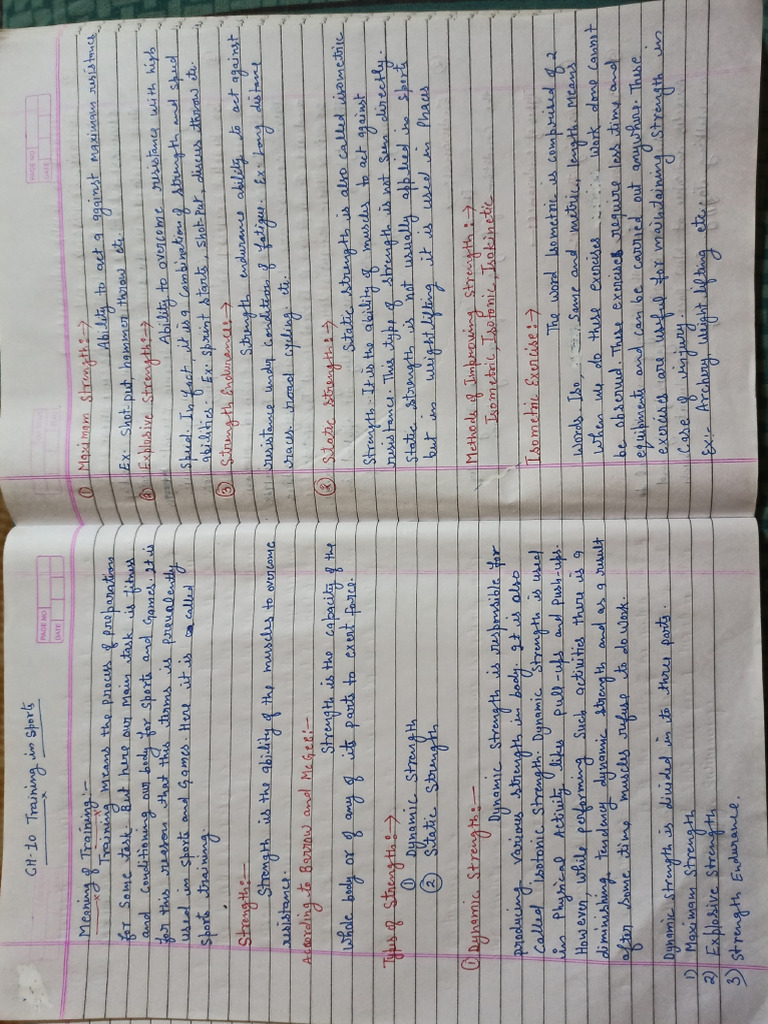 PAGE NO
DATE
CH:10 Training in Sports
Meaning of Training:-
Training means the process of preparation
for some task. But here our main task is fitness
and conditioning our body for sports and Games. It is
for this reasons that this terms is prevalently
used in sports and Games Here it is called
sports training.
Strength:-
Strength is the ability of the muscles to overcome
resistance.
According to Barrow and McGee:-
Strength is the capacity of the
whole body or of any of its parts to exert force.
Types of Strength:→
① Dynamic Strength
② Static Strength
① Dynamic Strength:-
Dynamic Strength is responsible for
producing various strength in body. It is also
called isotonic strength. Dynamic Strength is used
in Physical Activity likes Pull-ups and Push-ups.
However, while performing such activities there is a
diminishing tendency dynamic strength and as a result
after some time muscles refuse to do work.
Dynamic strength is divided in to three parts.
1) Maximum Strength
2) Explosive Strength
3) Strength Endurance.
PAGE NO
DATE
① Maximum Strength:→
Ability to act a against maximum resistance
Ex: Shot-put hammer throw etc.
② Explosive Strength:→
Ability to overcome resistance with high
speed. In fact, it is a combination of strength and speed
abilities. Ex: Sprint starts, shot-put, discus throw etc.
③ Strength Endurance:→
Strength endurance ability to act against
resistance under condition of fatigue. Ex: Long distance
races road cycling etc.
② Static Strength:→
Static strength is also called isometric
strength. It is the ability of muscles to act against
resistance. This type of strength is not seen directly.
Static strength is not usually applied in sports
but in weight lifting it is used in Phaces
Methods of Improving Strength:→
Isometric, Isotonic, Isokinetic
Isometric Exercise:→
The word Isometric is comprised of 2
words Iso, Same and metric, length. Means
when we do these exercises work done cannot
be observed These exercises require less time and
equipments and can be carried out anywhere. These
exercises are useful for maintaining strength in
case of injury.
Ex:- Archery, Weight lifting etc.